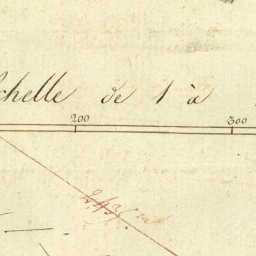 chelle de 1 à
200 300